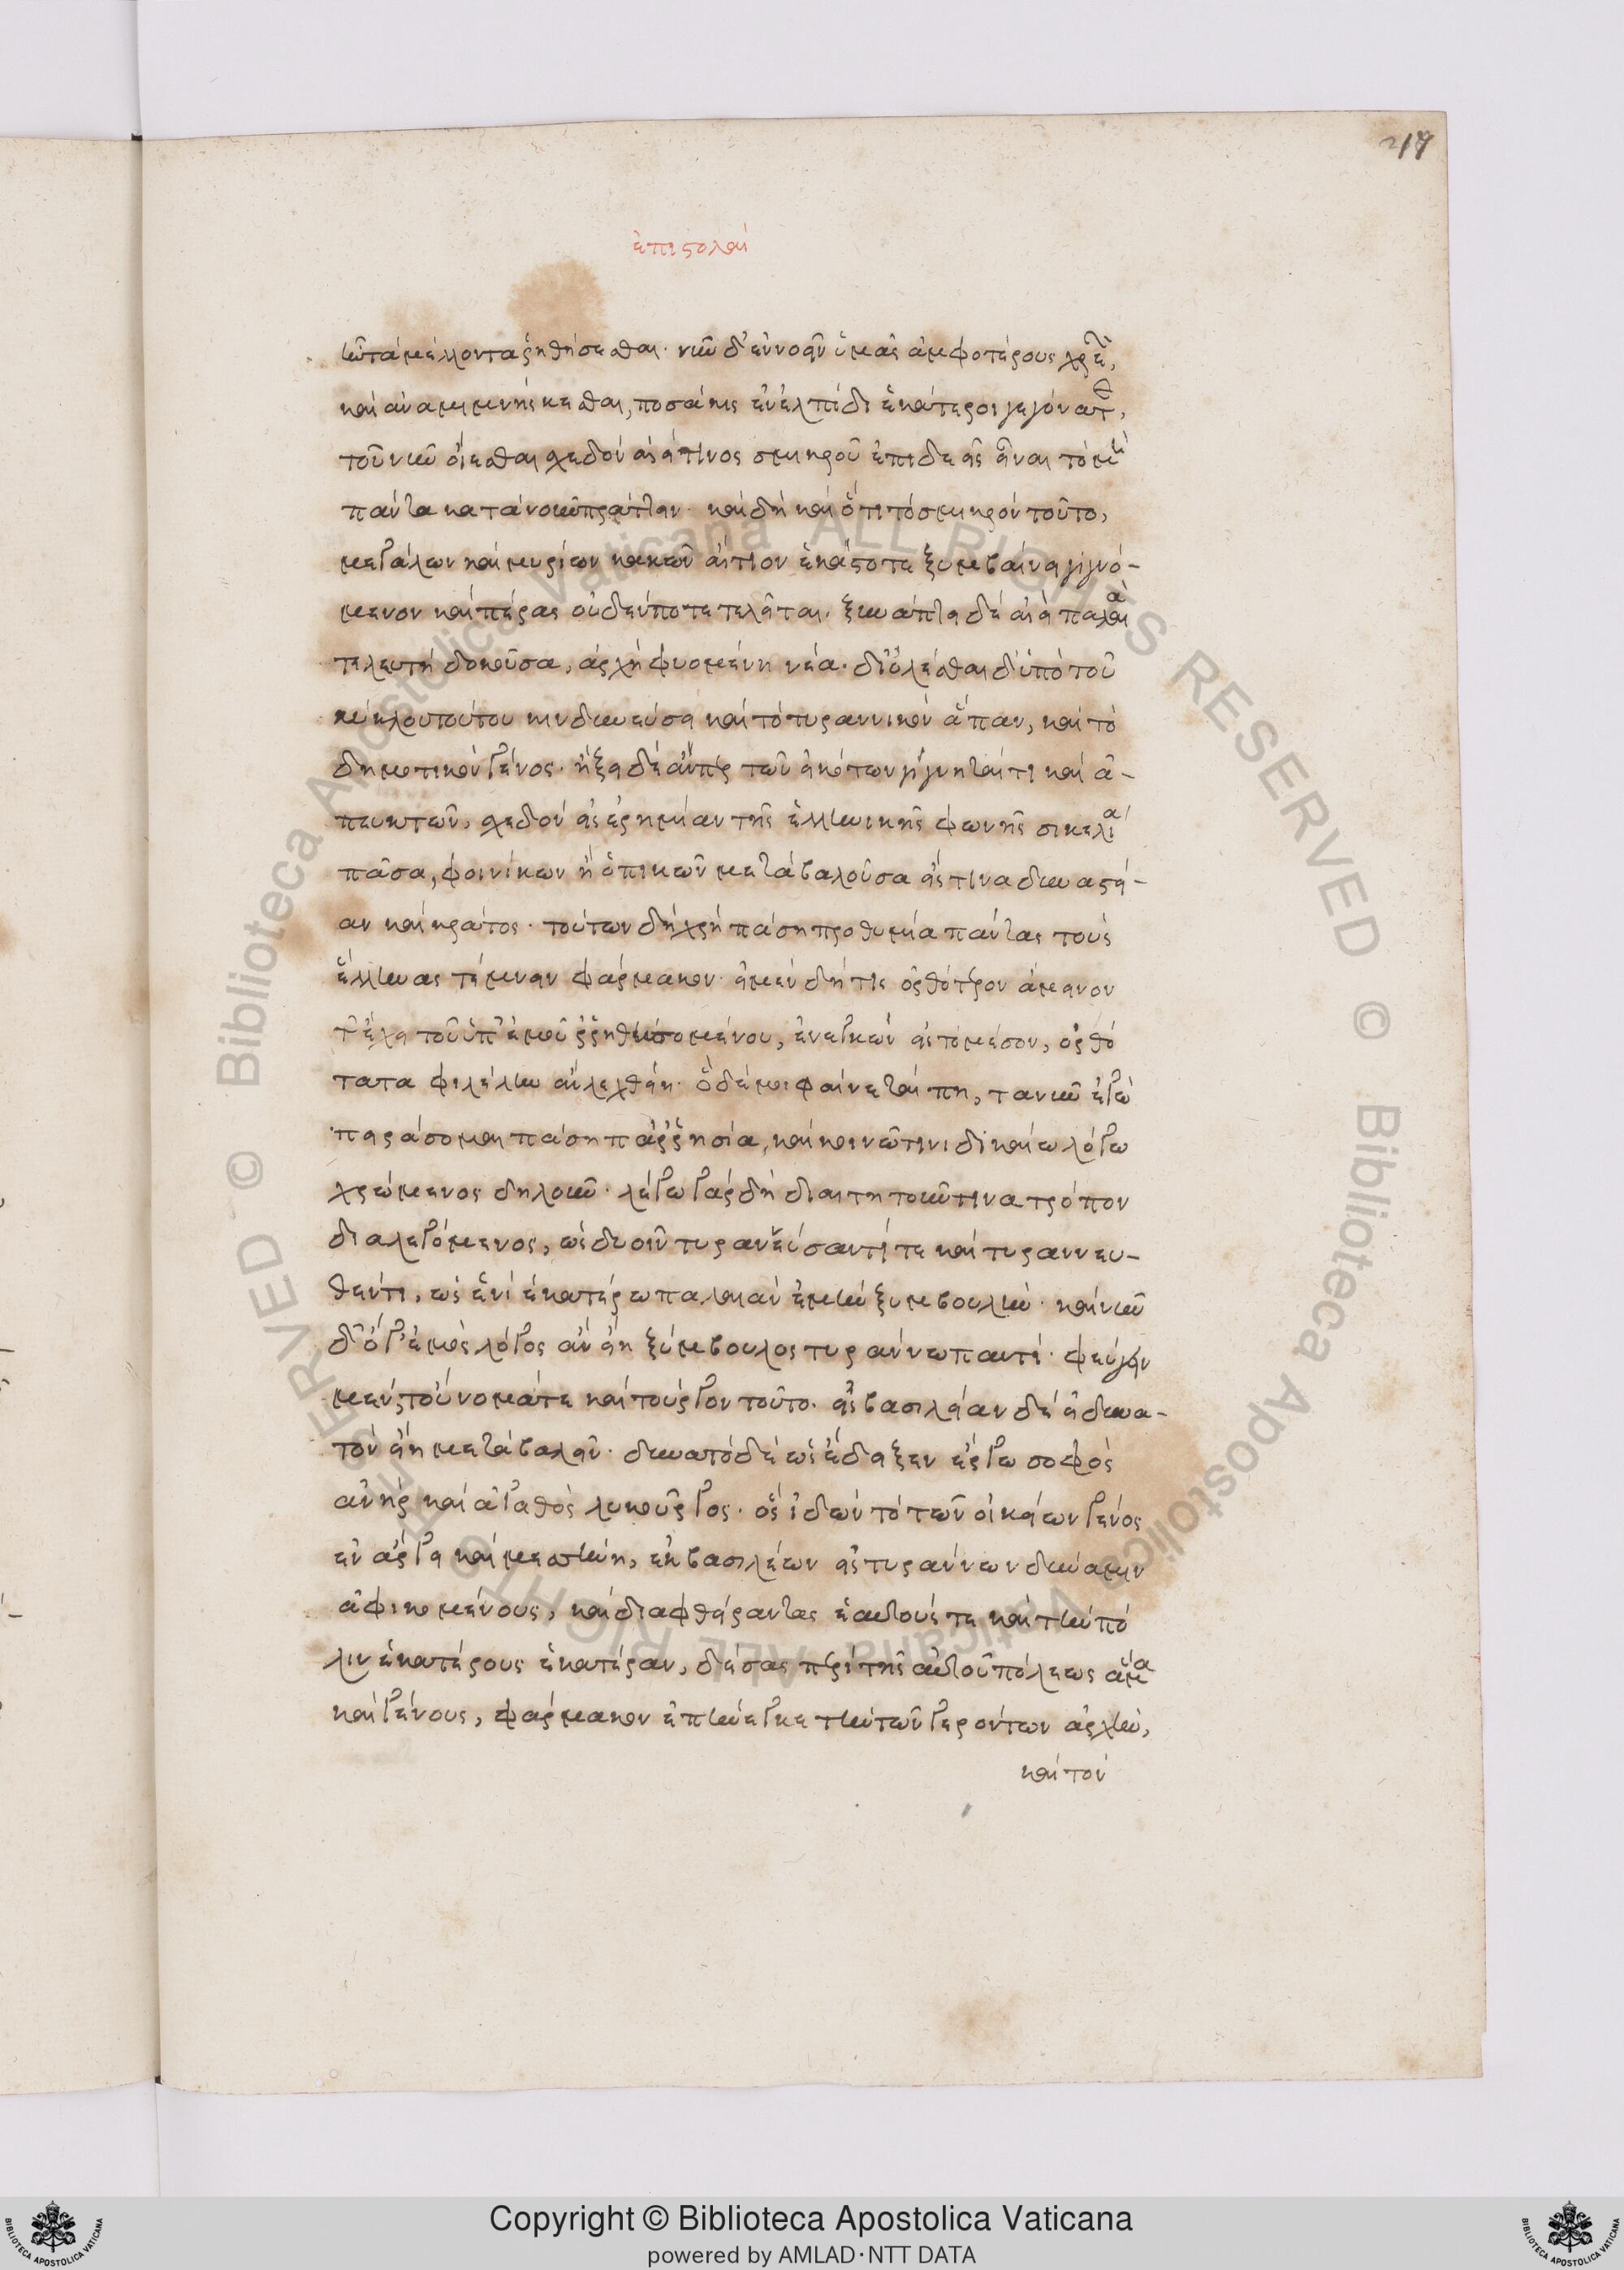 217
ἐπιστολαί
ὦτὰ μέλλοντα ῥηθήσεσθαι. νῦν δ' ἐννοεῖν ὑμᾶς ἀμφοτέρους χρεὼν,
καὶ ἀναμιμνήσκεσθαι, ποσάκις ἐν ἐλπίδι ἑκάτεροι γεγόνατε,
τοῦ νῦν οἴεσθαι σχεδὸν ἀεί τινος σμικροῦ ἐπιδεεῖς εἶναι τὸ μὴ
πάντα κατὰ νοῦν πράττειν. καὶ δὴ καὶ ὅτι τὸ σμικρὸν τοῦτο,
μεγάλων καὶ μυρίων κακῶν αἴτιον ἑκάστοτε ξυμβαίνει γιγνό-
μενον καὶ πέρας οὐδέν ποτε τελεῖται. ξυνάπτει δὲ ἀεὶ παλαιὰ
τελευτὴ δοκοῦσα, ἀρχὴ φυομένη νέα. διολέσθαι δ' ὑπὸ τοῦ
κύκλου τούτου κινδυνεύσει καὶ τὸ τυραννικὸν ἅπαν, καὶ τὸ
δημοτικὸν γένος. ἥξει δὲ ἄνπερ τῶν εἰκότων γίγνηταί τι καὶ ἀ-
πευκτῶν, σχεδὸν εἰς ἐρημίαν τῆς ἑλληνικῆς φωνῆς σικελία
πᾶσα, φοινίκων ἢ ὀπικῶν μεταβαλοῦσα εἴς τινα δυναστεί-
αν καὶ κράτος. τούτων δὴ χρὴ πάση προθυμία πάντας τοὺς
ἕλληνας τέμνειν φάρμακον. εἰ μὲν δή τις ὀρθότερον ἄμεινον
τ' ἔχει τοῦ ὑπ' ἐμοῦ ῥηθησομένου, ἐνεγκὼν εἰς τὸ μέσον, ὀρθό
τατα φιλέλην ἂν λεχθείη. ὃ δέ μοι φαίνεταί πη, τανῦν ἐγὼ
πειράσομαι πάση παρρησία, καὶ κοινῶ τινι δικαίω λόγω
χρώμενος δηλοῦν. λέγω γὰρ δὴ διαιτητοῦ τινα τρόπον
διαλεγόμενος, ὡς δυοῖν τυραννεύσαντί τε καὶ τυραννευ-
θέντι, ὡς ἑνὶ ἑκατέρω παλαιὰν ἐμὴν ξυμβουλήν. καὶ νῦν
δ' ὅ γ' ἐμὸς λόγος ἂν εἴη ξύμβουλος τυράννω παντί. φεύγειν
μὲν τοὔνομά τε καὶ τοὔργον τοῦτο. εἰς βασιλείαν δὲ εἰ δυνα-
τὸν εἴη μεταβαλεῖν. δυνατὸ δὲ ὡς ἔδειξεν ἔργω σοφὸς
ἀνὴρ καὶ ἀγαθὸς λυκοῦργος. ὃς ἰδὼν τὸ τῶν οἰκείων γένος
ἐν ἄργει καὶ μεσσήνη, ἐκ βασιλέων εἰς τυράννων δύναμιν
ἀφικομένους, καὶ διαφθείραντας ἑαυτούς τε καὶ τὴν πό
λιν ἑκατέρους ἑκατέραν, δείσας περὶ τῆς αὑτοῦ πόλεως ἅμα
καὶ γένους, φάρμακον ἐπήνεγκε τὴν τῶν γερόντων ἀρχὴν,
καὶ τὸν
Biblioteca Apostolica Vaticana ALL RIGHTS RESERVED ©
Copyright © Biblioteca Apostolica Vaticana
powered by AMLAD·NTT DATA
BIBLIOTECA APOSTOLICA VATICANA
BIBLIOTECA APOSTOLICA VATICANA